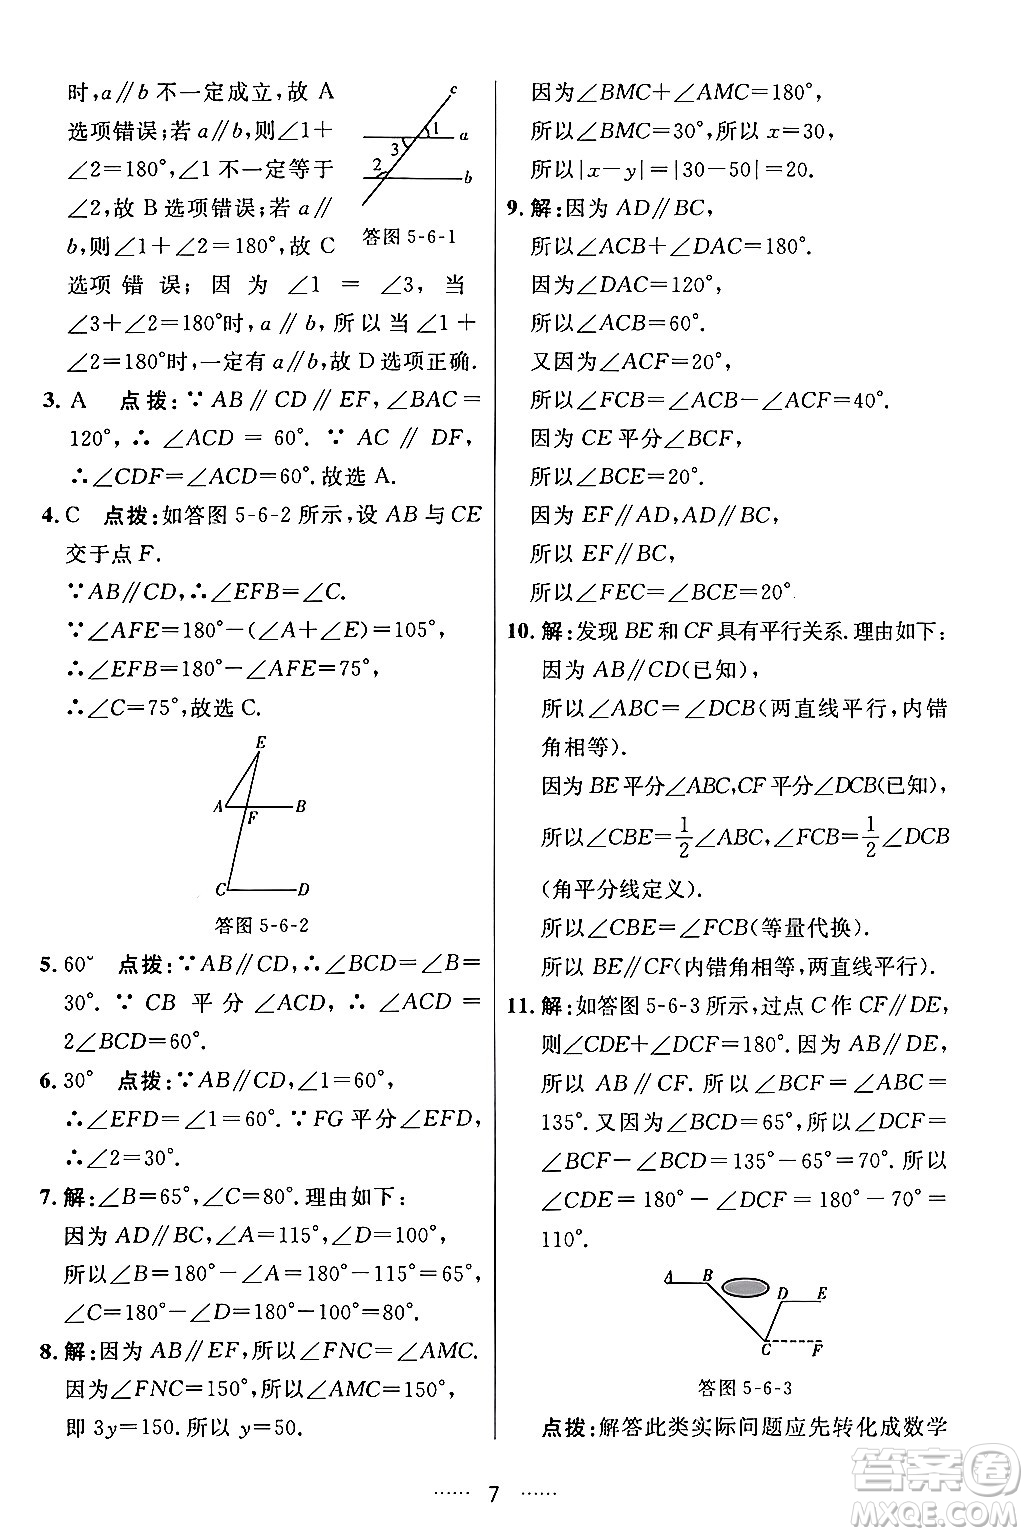 时,a∥b 不一定成立,故 A
选项错误;若 a∥b,则∠1+
∠2=180°,∠1 不一定等于
∠2,故 B 选项错误;若 a∥
b,则∠1+∠2=180°,故 C
选项错误;因为∠1=∠3,当
∠3+∠2=180°时,a∥b,所以当∠1+
∠2=180°时,一定有 a∥b,故 D 选项正确.
c
1
a
3
2
b
答图 5-6-1
3. A 点拨:∵AB∥CD∥EF,∠BAC=
120°,∴∠ACD=60°.∵AC∥DF,
∴∠CDF=∠ACD=60°.故选 A.
4. C 点拨:如答图 5-6-2 所示,设 AB 与 CE
交于点 F.
∵AB∥CD,∴∠EFB=∠C.
∵∠AFE=180°-(∠A+∠E)=105°,
∴∠EFB=180°-∠AFE=75°,
∴∠C=75°,故选 C.
E
A
F
B
C
D
答图 5-6-2
5. 60° 点拨:∵AB∥CD,∴∠BCD=∠B=
30°.∵CB 平分∠ACD,∴∠ACD=
2∠BCD=60°.
6. 30° 点拨:∵AB∥CD,∠1=60°,
∴∠EFD=∠1=60°.∵FG 平分∠EFD,
∴∠2=30°.
7. 解:∠B=65°,∠C=80°.理由如下:
因为 AD∥BC,∠A=115°,∠D=100°,
所以∠B=180°-∠A=180°-115°=65°,
∠C=180°-∠D=180°-100°=80°.
8. 解:因为 AB∥EF,所以∠FNC=∠AMC.
因为∠FNC=150°,所以∠AMC=150°,
即 3y=150.所以 y=50.
因为∠BMC+∠AMC=180°,
所以∠BMC=30°,所以 x=30,
所以|x-y|=|30-50|=20.
9. 解:因为 AD∥BC,
所以∠ACB+∠DAC=180°.
因为∠DAC=120°,
所以∠ACB=60°.
又因为∠ACF=20°,
所以∠FCB=∠ACB-∠ACF=40°.
因为 CE 平分∠BCF,
所以∠BCE=20°.
因为 EF∥AD,AD∥BC,
所以 EF∥BC,
所以∠FEC=∠BCE=20°.
10. 解:发现 BE 和 CF 具有平行关系.理由如下:
因为 AB∥CD(已知),
所以∠ABC=∠DCB(两直线平行,内错
角相等).
因为 BE 平分∠ABC,CF 平分∠DCB(已知),
所以∠CBE=1/2∠ABC,∠FCB=1/2∠DCB
(角平分线定义).
所以∠CBE=∠FCB(等量代换).
所以 BE∥CF(内错角相等,两直线平行).
11. 解:如答图 5-6-3 所示,过点 C 作 CF∥DE,
则∠CDE+∠DCF=180°.因为 AB∥DE,
所以 AB∥CF.所以∠BCF=∠ABC=
135°.又因为∠BCD=65°,所以∠DCF=
∠BCF-∠BCD=135°-65°=70°.所以
∠CDE=180°-∠DCF=180°-70°=
110°.
A
B
D
E
C
F
答图 5-6-3
点拨:解答此类实际问题应先转化成数学
······ 7 ······
答案圈
MXQE.COM